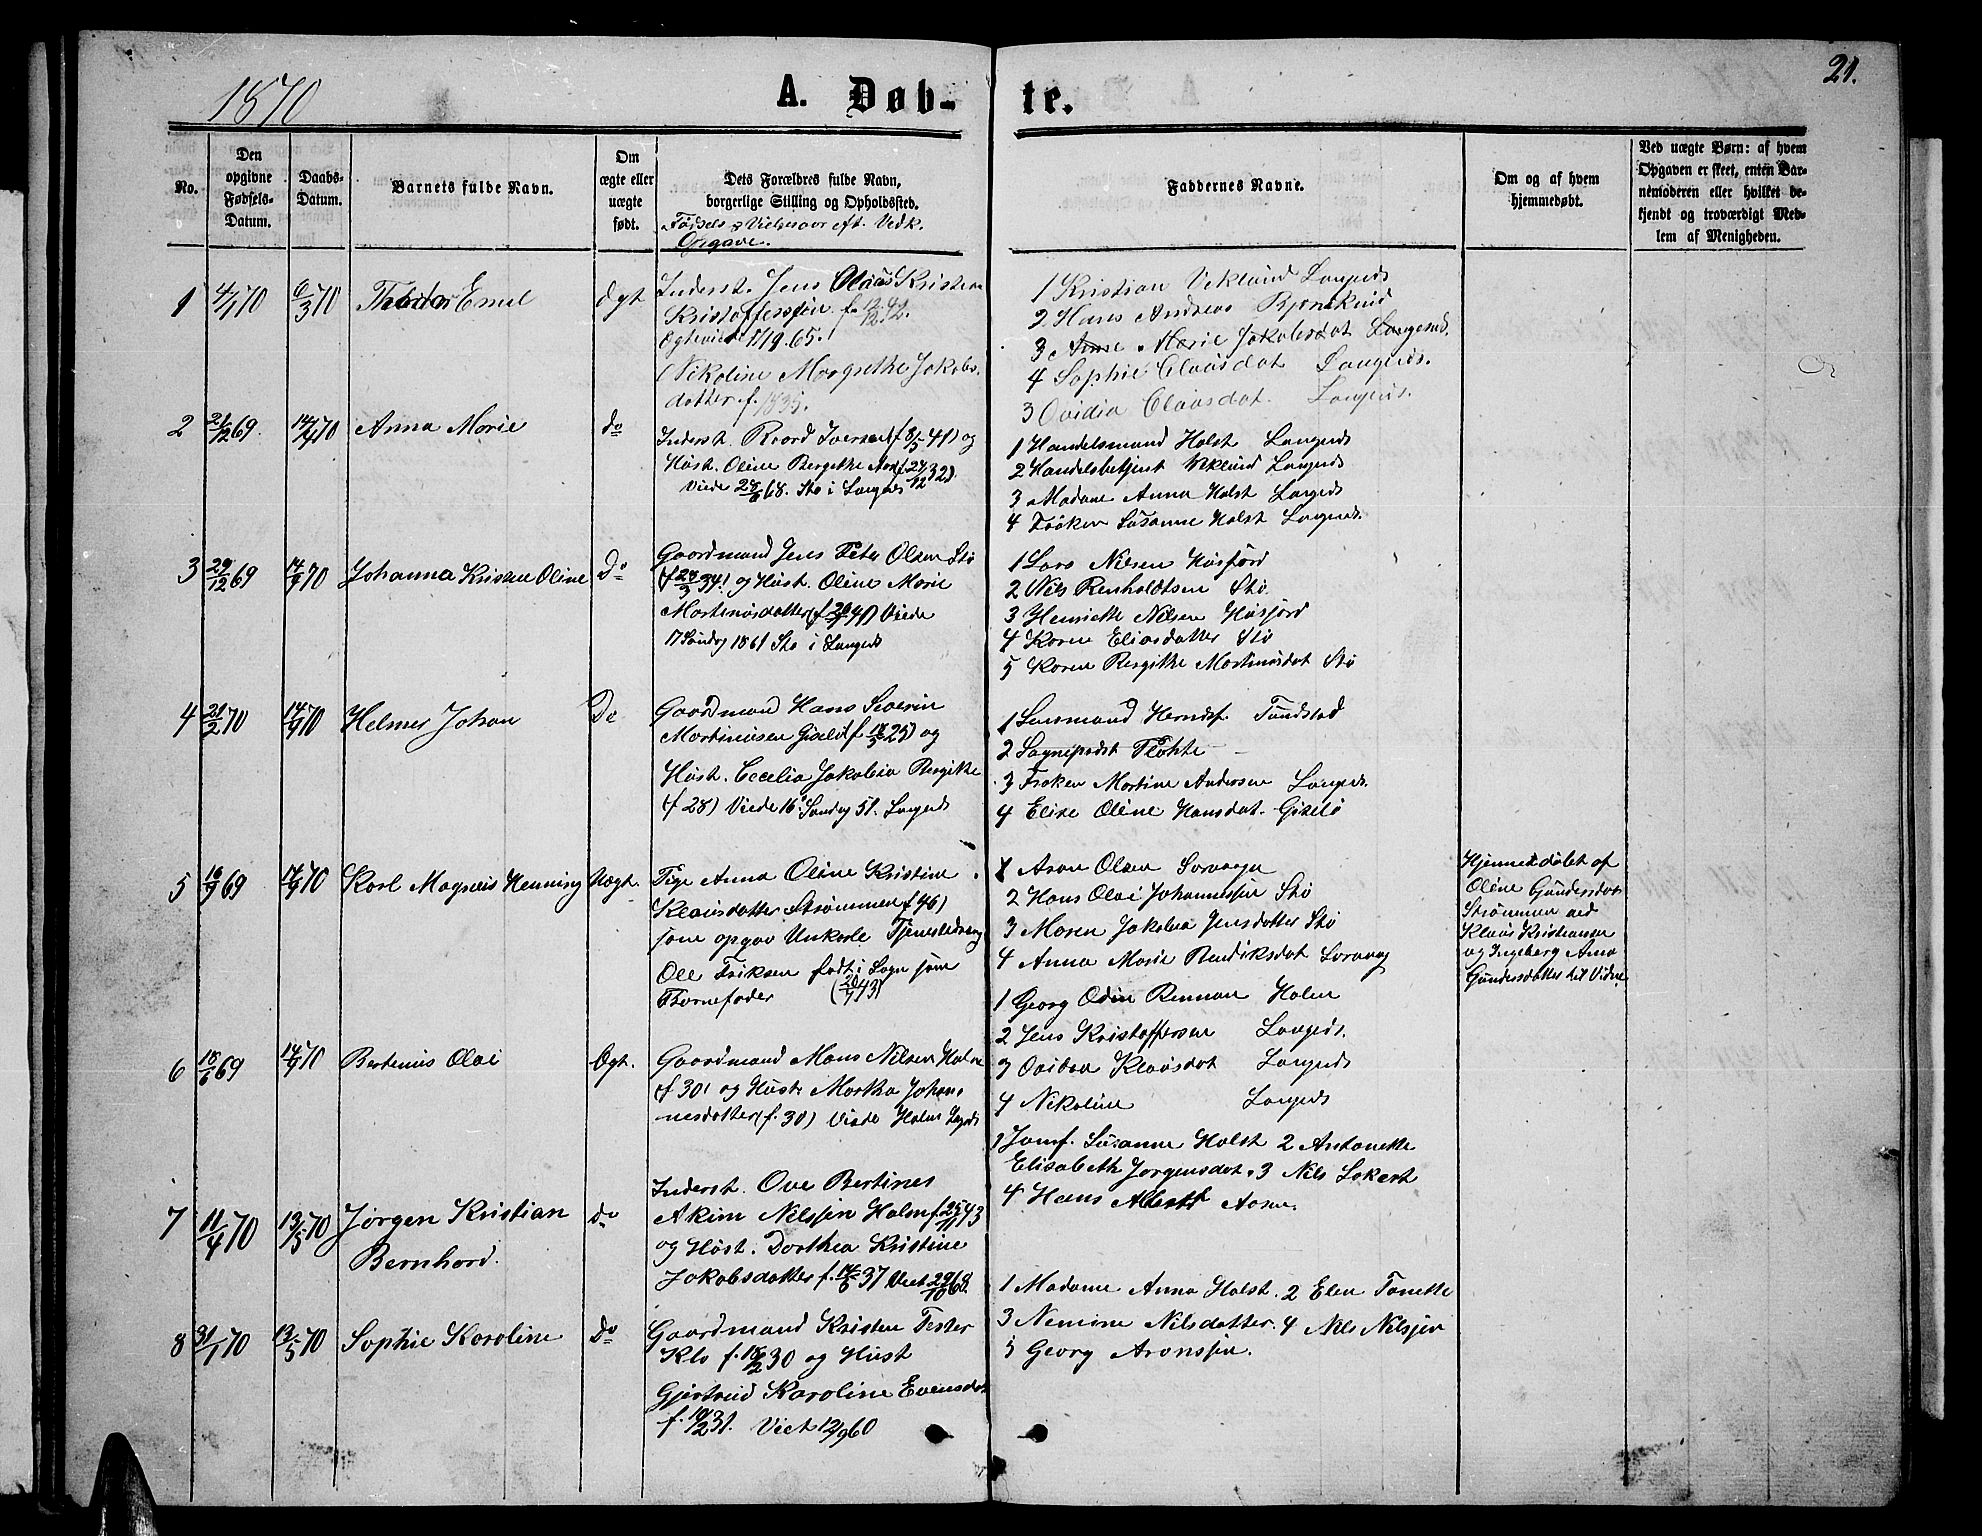 1870
A. Døb-
te.
21.
No.
Den opgivne Fødsels-Datum.
Daabs-Datum.
Barnets fulde Navn.
Om ægte eller uægte født.
Dets Forældres fulde Navn,
borgerlige Stilling og Opholdssted.
Fødsels & Vielsesaar eft. Vedk.
Opgave.
Faddernes Navne.
Om og af hvem
hjemmedøbt.
Ved uægte Børn: af hvem
Opgaven er skeet, enten Bar-
nemoderen eller hvilket be-
kjendt og troværdigt Med-
lem af Menigheden.
1 4/1 70 6/3 70 Emil Ægt
Inderst. Jens Olaus Kristian
Kristoffersen f. 12/12 42.
Ægteviet 17/9 65.
Nikoline Margrethe Jakobs-
datter f. 1835.
1 Kristian Veklund Langnds
2 Hans Andreas
3 Anne Marie Jakobsdat Langends.
4 Sophie Clausdat Langnds.
3 Ovidia Clausdat. Langnds.
2 21/12 69. 14/4 70 Anna Marie do
Inderst. Roard Iversen (f 8/5 41) og
Hust. Oline Bergitte (f 24/12 32).
Viede 28/6 68. Stø i Langnds
1 Handelsmand Holst Langnds
2 Handelsbetjent Veklund Langnds
3 Madame Anna Holst Langnds
4 Frøken Susanne Holst Langnds.
3 29/12 69 14/4 70 Johanna Kristen Oline Do
Gaardmand Jens Peter Olsen Stø
(f 24/3 34) og Hust. Oline Marie
Martinusdatter (f 20/4 41) Viede
17 Søndag 1861 Stø i Langnds
1 Lars Nilsen Husfjord
2 Nils Renholdtsen Stø.
3 Henriette Nilsen Husfjord
4 Karen Eliasdatter Stø
5 Karen Bergitte Martinusdat Stø
4 21/2 70 14/4 70 Helmer Johan Do
Gaardmand Hans Severin
Martinusen Gisslø (f 18/5 25) og
Hust. Cecelia Jakobia Bergitte
(f 28) Viede 16 Søndag 51. Langnds
1 Lensmand Herndf. Tundstad
2 Sognepræst Flohte
3 Frøken Martine Andersen Langnds.
4 Elise Oline Hansdat. Gisslø
5 16/9 69 14/4 70 Karl Magnus Henning Uægt.
Pige Anna Oline Kristine
Klausdatter Strømmen f 46)
som opgav Unkarle Tjenestedreng
Ole Eriksen født i Sogn som
Barnefader (20/7 43)
1 Aron Olsen Sorvaagn
2 Hans Olai Johannessen Stø
3 Maren Jakobia Jensdatter Stø
4 Anna Marie Bendiksdat Sorvaag
Hjemmedøbt af
Oline Gundersdatter
Strømmen ved
Klaus Kristiansen
og Ingeborg Anna
Gundersdatter til Vidne
6 18/6 69 14/4 70 Bertinius Olai Ægt.
Gaardmand Mons Nilsen Holm
(f 30) og Hustr Martha Johan-
nesdatter (f. 30) Viede Holm Lngnds
1 Georg Odin Renman Holm
2 Jens Kristoffersen Langnds.
3 Ovidia Klausdat Langnds
4 Nikoline Langnds
7 11/4 70 13/5 70 Jørgen Kristian
Bernhard. do
Inderst. Ove Bertines
Akim Nilssen Holm f. 25/11 43
og Hust. Dorthea Kristine
Jakobsdatter f. 14/6 37 Viet 29/10 68.
1 Jomf. Susanne Holst 2 Antonette
Elisabeth Jørgensdat. 3 Nils Lokert
4 Hans Albert
8 31/1 70 13/5 70 Sophie Karoline Do
Gaardmand Kristen Fester
Klo f. 18/12 30 og Hust
Gjertrud Karoline Evensdat
f. 10/2 31. Viet 12/9 60
1 Madame Anna Holst. 2 Elen Tonette
3 Nemine Nilsdatter. 4 Nils Nilssen
5 Georg Aronssen.